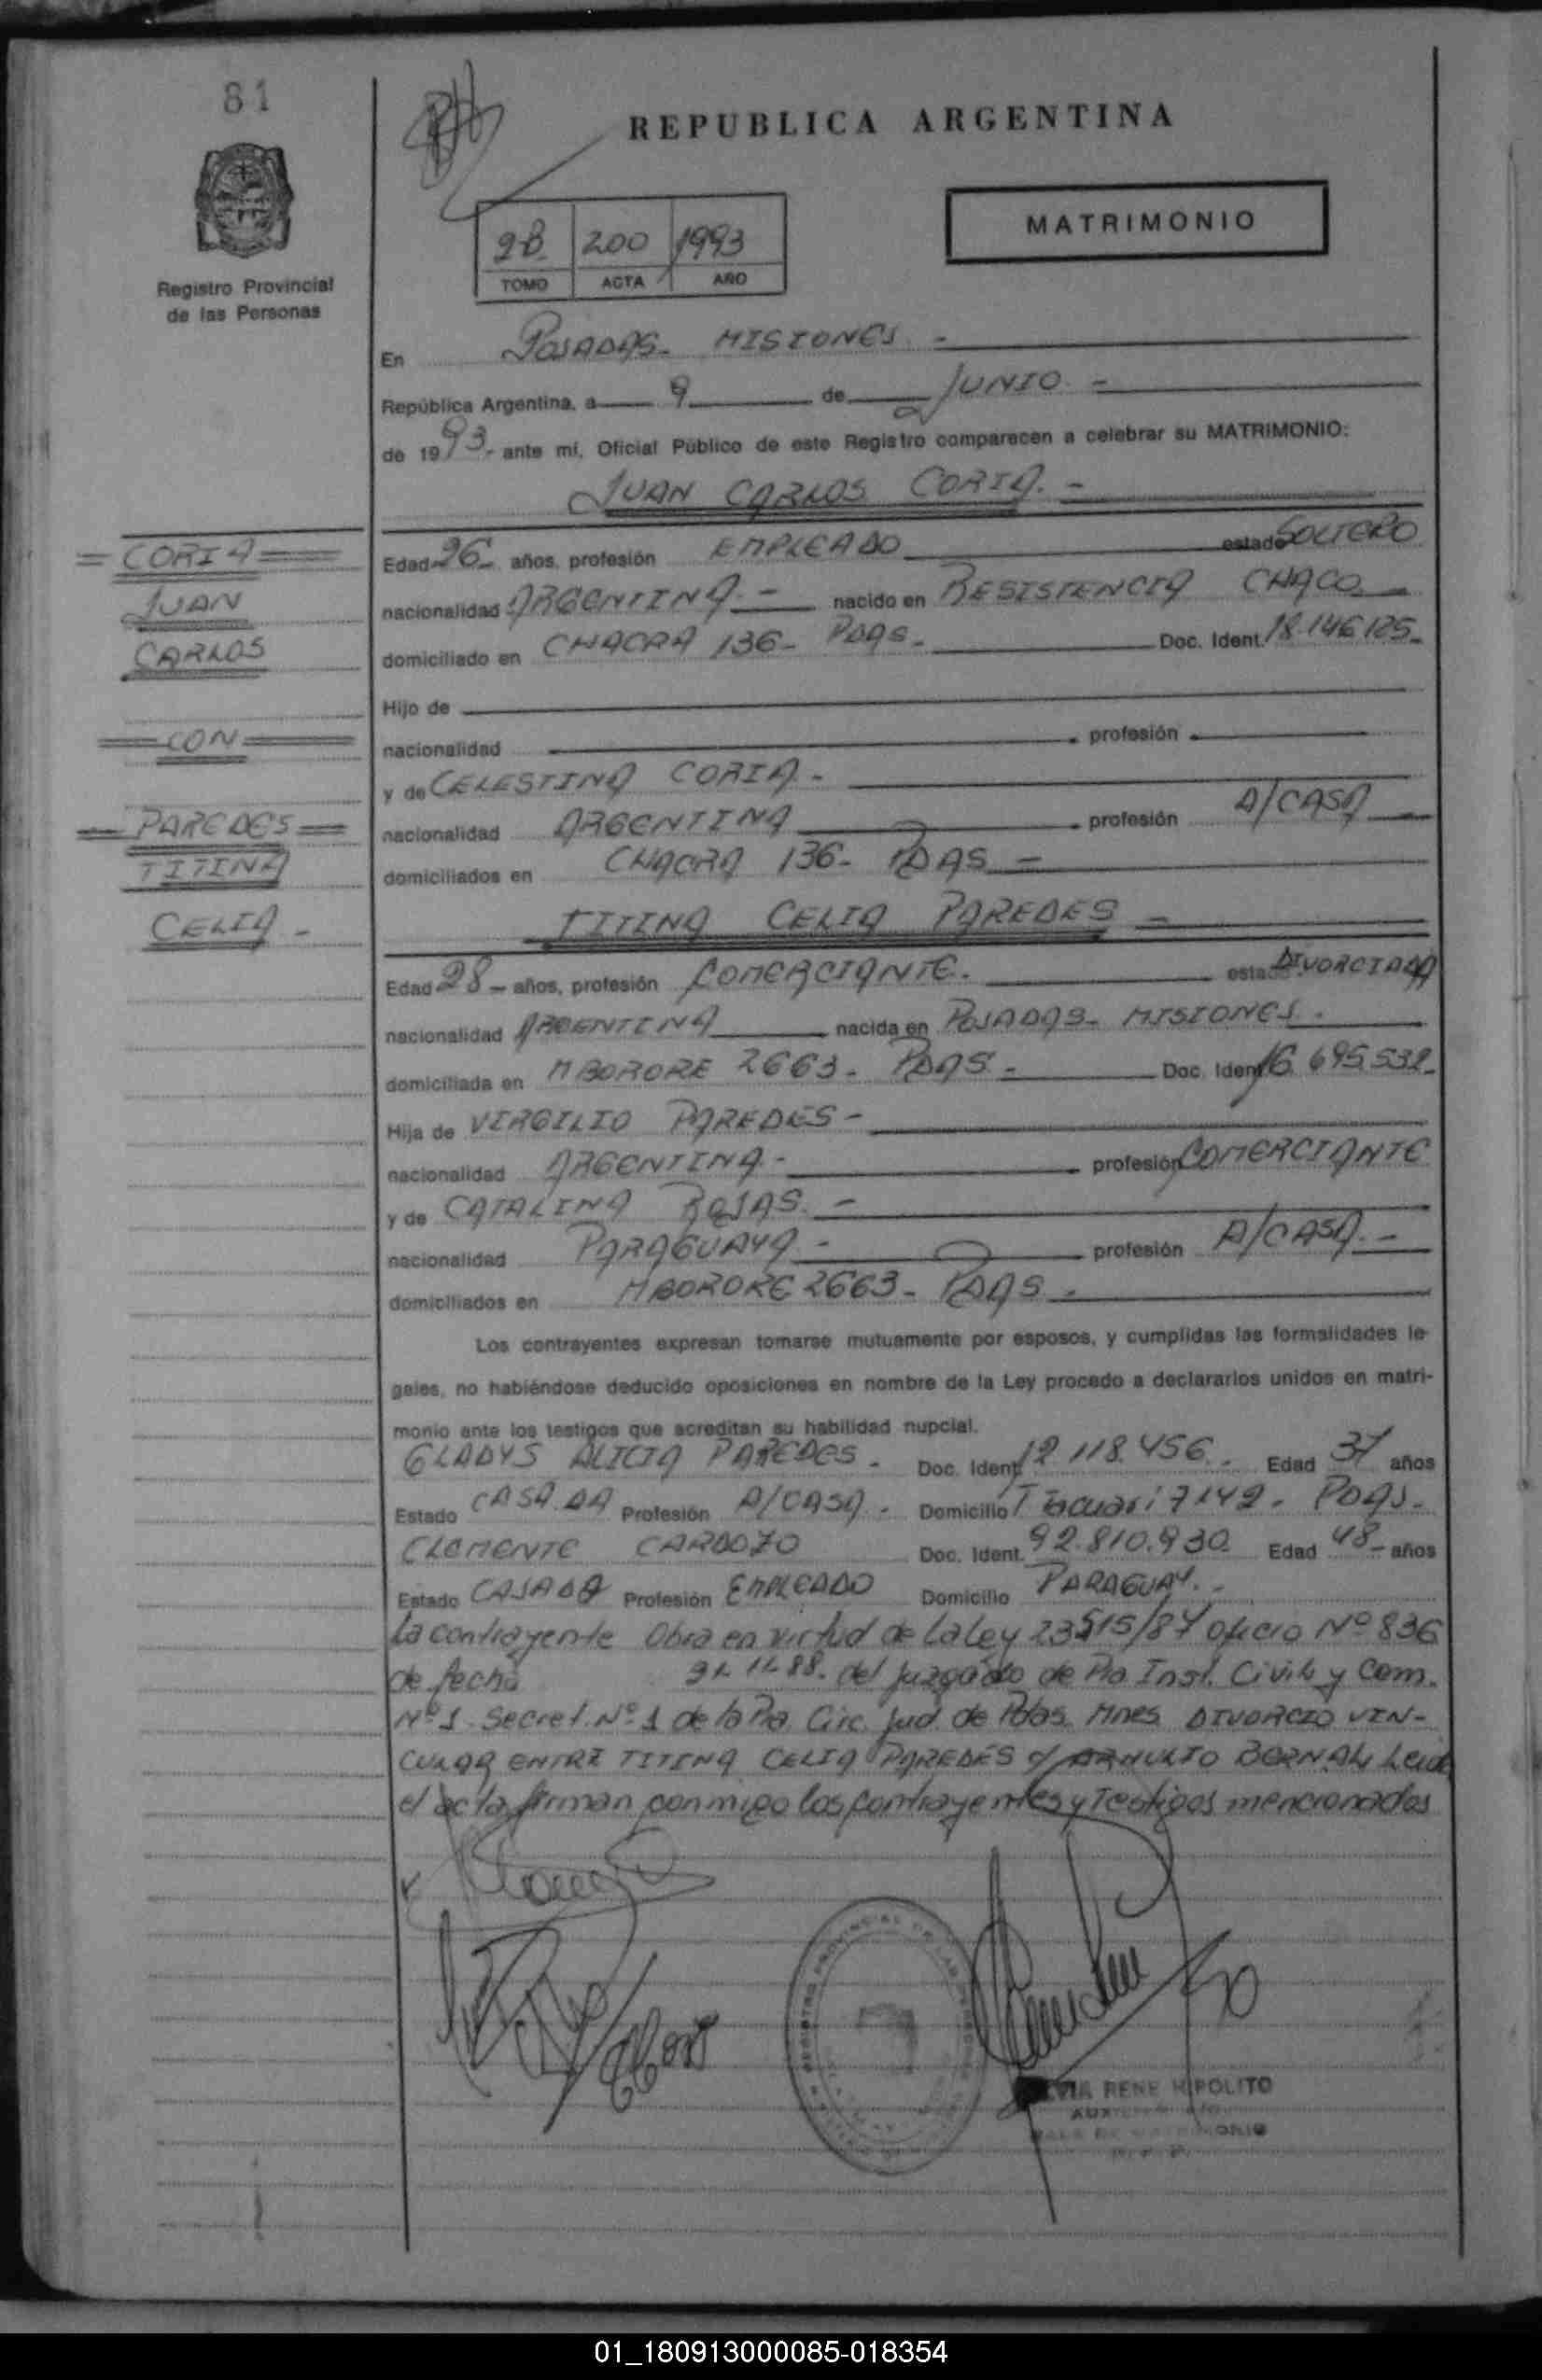 81
REPUBLICA ARGENTINA
MATRIMONIO
2B 200 1993
TOMO ACTA AÑO
Registro Provincial
de las Personas
En POSADAS- MISIONES -
República Argentina, a 9 de JUNIO -
de 1993- ante mí, Oficial Público de este Registro comparecen a celebrar su MATRIMONIO:
JUAN CARLOS CORIA. -
= CORIA =
JUAN
CARLOS
= CON =
= PAREDES =
TITINA
CELIA -
Edad 26- años, profesión EMPLEADO estado SOLTERO
nacionalidad ARGENTINA - nacido en RESISTENCIA CHACO -
domiciliado en CHACRA 136- PDAS - Doc. Ident. 18.146.125-
Hijo de
nacionalidad profesión
y de CELESTINA CORIA -
nacionalidad ARGENTINA profesión A/CASA
domiciliados en CHACRA 136- PDAS -
TITINA CELIA PAREDES -
Edad 28- años, profesión COMERCIANTE. estado DIVORCIADA
nacionalidad ARGENTINA nacida en POSADAS- MISIONES.
domiciliada en MBORORE 2663- PDAS - Doc. Ident. 16.695.532-
Hija de VIRGILIO PAREDES -
nacionalidad ARGENTINA - profesión COMERCIANTE
y de CATALINA ROJAS. -
nacionalidad PARAGUAYA - profesión A/CASA. -
domiciliados en MBORORE 2663- PDAS -
Los contrayentes expresan tomarse mutuamente por esposos, y cumplidas las formalidades le-
gales, no habiéndose deducido oposiciones en nombre de la Ley procedo a declararlos unidos en matri-
monio ante los testigos que acreditan su habilidad nupcial.
GLADYS ALICIA PAREDES - Doc. Ident. 12.118.456. Edad 37 años
Estado CASADA Profesión A/CASA - Domicilio Tacuarí 7142. PDAS.
CLEMENTE CARDOZO Doc. Ident. 92.810.930 Edad 48- años
Estado CASADO Profesión EMPLEADO Domicilio PARAGUAY. -
La contrayente Obra en virtud de la Ley 23515/87 oficio Nº 836
de fecha del Juzgado de Pra Inst. Civil y Com.
Nº 1. Secret. Nº 1 de la Pra. Circ. Jud. de Pdas. Mnes DIVORCIO VIN-
CULAR ENTRE TITINA CELIA PAREDES c/ ARNULFO BERNAL. Leida
el acta firman conmigo los contrayentes y Testigos mencionados
RENE HIPOLITO
01_180913000085-018354